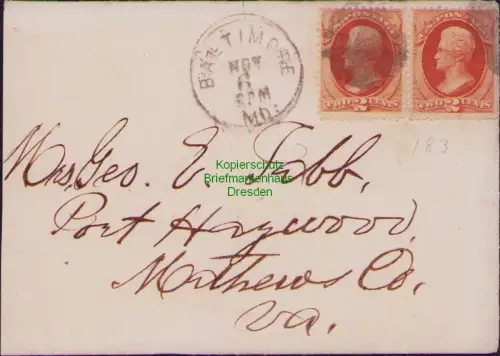 BALTIMORE
NOV
6
MD.
TWO 2 CENTS
TWO 2 CENTS
183
Kopierschutz
Briefmarkenhaus
Dresden
Mrs. Geo. E. Tabb,
Port Haywood,
Mathews Co.
Va.